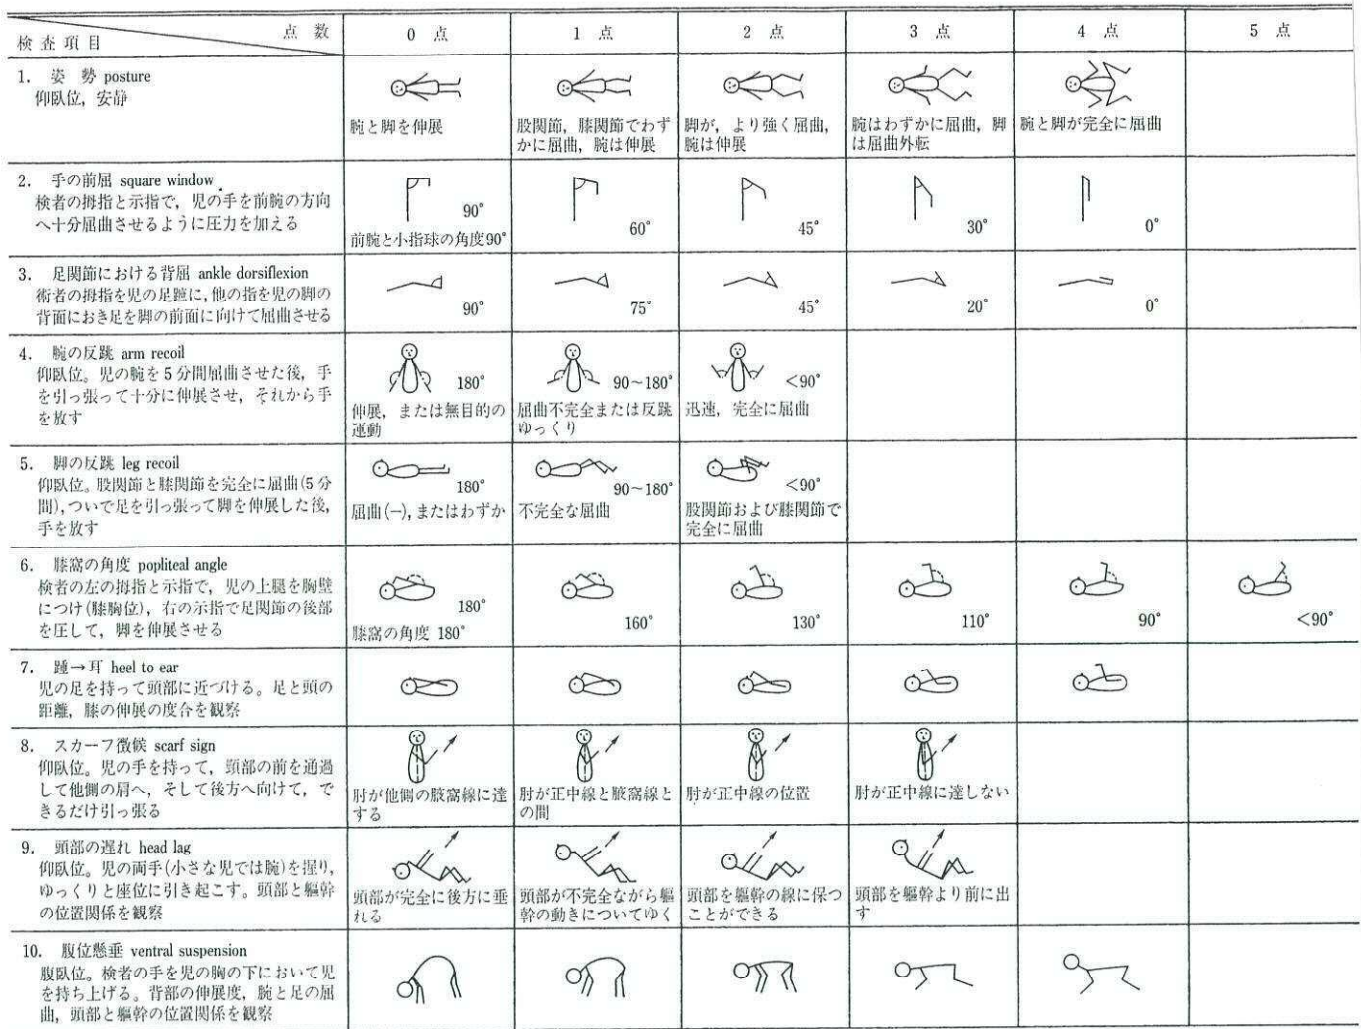 点 数
検 査 項 目
0 点
1 点
2 点
3 点
4 点
5 点
1. 姿 勢 posture
仰臥位，安静
腕と脚を伸展
股関節，膝関節でわず
かに屈曲，腕は伸展
脚が，より強く屈曲，
腕は伸展
腕はわずかに屈曲，脚
は屈曲外転
腕と脚が完全に屈曲
2. 手の前屈 square window
検者の拇指と示指で，児の手を前腕の方向
へ十分屈曲させるように圧力を加える
90°
前腕と小指球の角度90°
60°
45°
30°
0°
3. 足関節における背屈 ankle dorsiflexion
術者の拇指を児の足蹠に，他の指を児の脚の
背面におき足を脚の前面に向けて屈曲させる
90°
75°
45°
20°
0°
4. 腕の反跳 arm recoil
仰臥位。児の腕を5分間屈曲させた後，手
を引っ張って十分に伸展させ，それから手
を放す
180°
伸展，または無目的の
運動
90〜180°
屈曲不完全または反跳
ゆっくり
<90°
迅速，完全に屈曲
5. 脚の反跳 leg recoil
仰臥位。股関節と膝関節を完全に屈曲(5分
間)，ついで足を引っ張って脚を伸展した後，
手を放す
180°
屈曲(−)，またはわずか
90〜180°
不完全な屈曲
<90°
股関節および膝関節で
完全に屈曲
6. 膝窩の角度 popliteal angle
検者の左の拇指と示指で，児の上腿を胸壁
につけ(膝胸位)，右の示指で足関節の後部
を圧して，脚を伸展させる
180°
膝窩の角度 180°
160°
130°
110°
90°
<90°
7. 踵→耳 heel to ear
児の足を持って頭部に近づける。足と頭の
距離，膝の伸展の度合を観察
8. スカーフ徴候 scarf sign
仰臥位。児の手を持って，頸部の前を通過
して他側の肩へ，そして後方へ向けて，で
きるだけ引っ張る
肘が他側の腋窩線に達
する
肘が正中線と腋窩線と
の間
肘が正中線の位置
肘が正中線に達しない
9. 頭部の遅れ head lag
仰臥位。児の両手(小さな児では腕)を握り，
ゆっくりと座位に引き起こす。頭部と軀幹
の位置関係を観察
頭部が完全に後方に垂
れる
頭部が不完全ながら軀
幹の動きについてゆく
頭部を軀幹の線に保つ
ことができる
頭部を軀幹より前に出
す
10. 腹位懸垂 ventral suspension
腹臥位。検者の手を児の胸の下において児
を持ち上げる。背部の伸展度，腕と足の屈
曲，頭部と軀幹の位置関係を観察